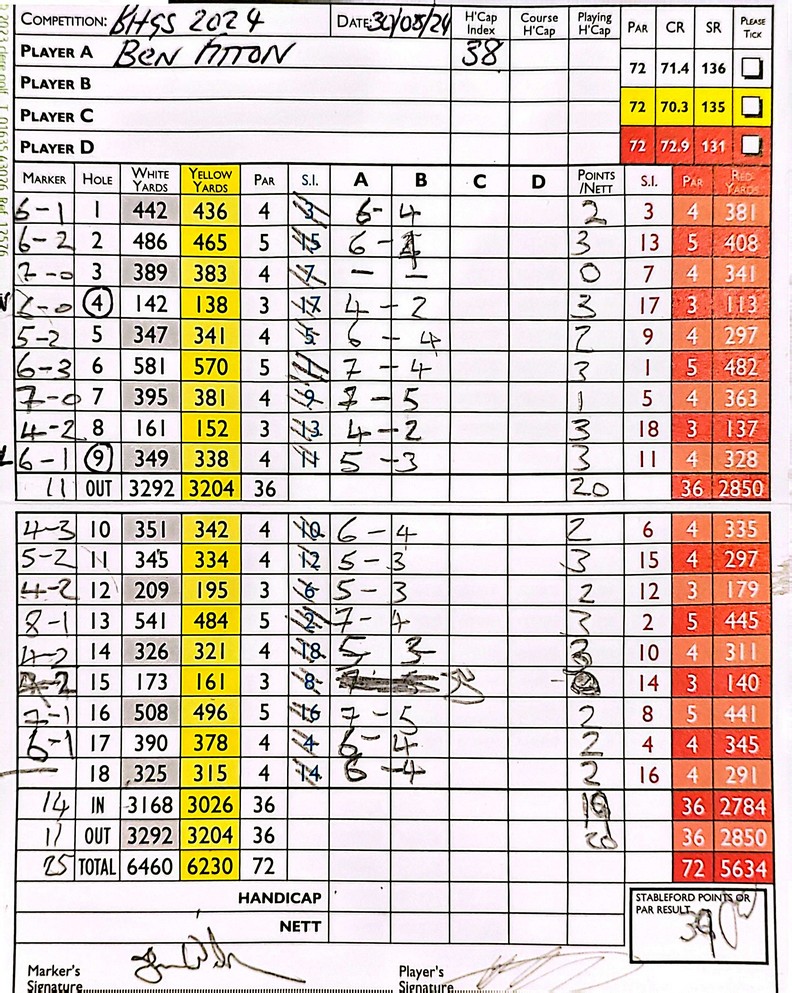 COMPETITION: BHGS 2024 DATE: 30/08/24 H'CAP INDEX COURSE H'CAP PLAYING H'CAP PAR CR SR PLEASE TICK
PLAYER A BEN 38
72 71.4 136
PLAYER B
PLAYER C 72 70.3 135
PLAYER D 72 72.9 131
MARKER HOLE WHITE YARDS YELLOW YARDS PAR S.I. A B C D POINTS /NETT S.I. PAR RED YARDS
6-1 1 442 436 4 3 6-4 2 3 4 381
6-2 2 486 465 5 15 6- 3 13 5 408
7-0 3 389 383 4 7 - - 0 7 4 341
4 142 138 3 17 4-2 3 17 3 113
5-2 5 347 341 4 5 6-4 2 9 4 297
6-3 6 581 570 5 7-4 3 1 5 482
7-0 7 395 381 4 9 7-5 1 5 4 363
4-2 8 161 152 3 13 4-2 3 18 3 137
6-1 9 349 338 4 11 5-3 3 11 4 328
11 OUT 3292 3204 36 20 36 2850
4-3 10 351 342 4 10 6-4 2 6 4 335
5-2 11 345 334 4 12 5-3 3 15 4 297
4-2 12 209 195 3 6 5-3 2 12 3 179
8-1 13 541 484 5 2 7-4 3 2 5 445
4-2 14 326 321 4 18 5 3 3 10 4 311
15 173 161 3 8 14 3 140
7-1 16 508 496 5 16 7-5 2 8 5 441
6-1 17 390 378 4 4 6-4 2 4 4 345
18 325 315 4 14 6-4 2 16 4 291
14 IN 3168 3026 36 19 36 2784
11 OUT 3292 3204 36 20 36 2850
25 TOTAL 6460 6230 72 72 5634
HANDICAP
NETT
STABLEFORD POINTS OR PAR RESULT 39
Marker's Signature Player's Signature